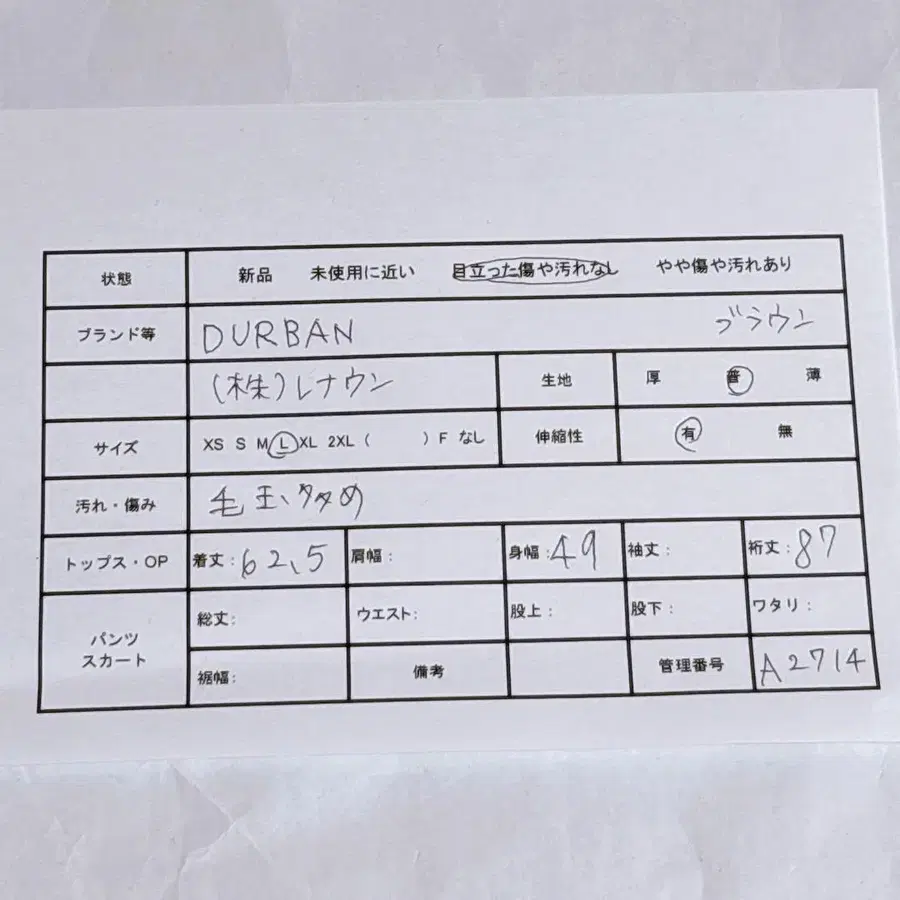 状態 新品 未使用に近い 目立った傷や汚れなし やや傷や汚れあり
ブランド等 DURBAN ブラウン
(株)レナウン 生地 厚 普 薄
サイズ XS S M L XL 2XL ( ) F なし 伸縮性 有 無
汚れ・傷み 毛玉、タタめ
トップス・OP 着丈:62、5 肩幅: 身幅:49 袖丈: 裄丈:87
パンツ スカート 総丈: ウエスト: 股上: 股下: ワタリ:
裾幅: 備考 管理番号 A2714